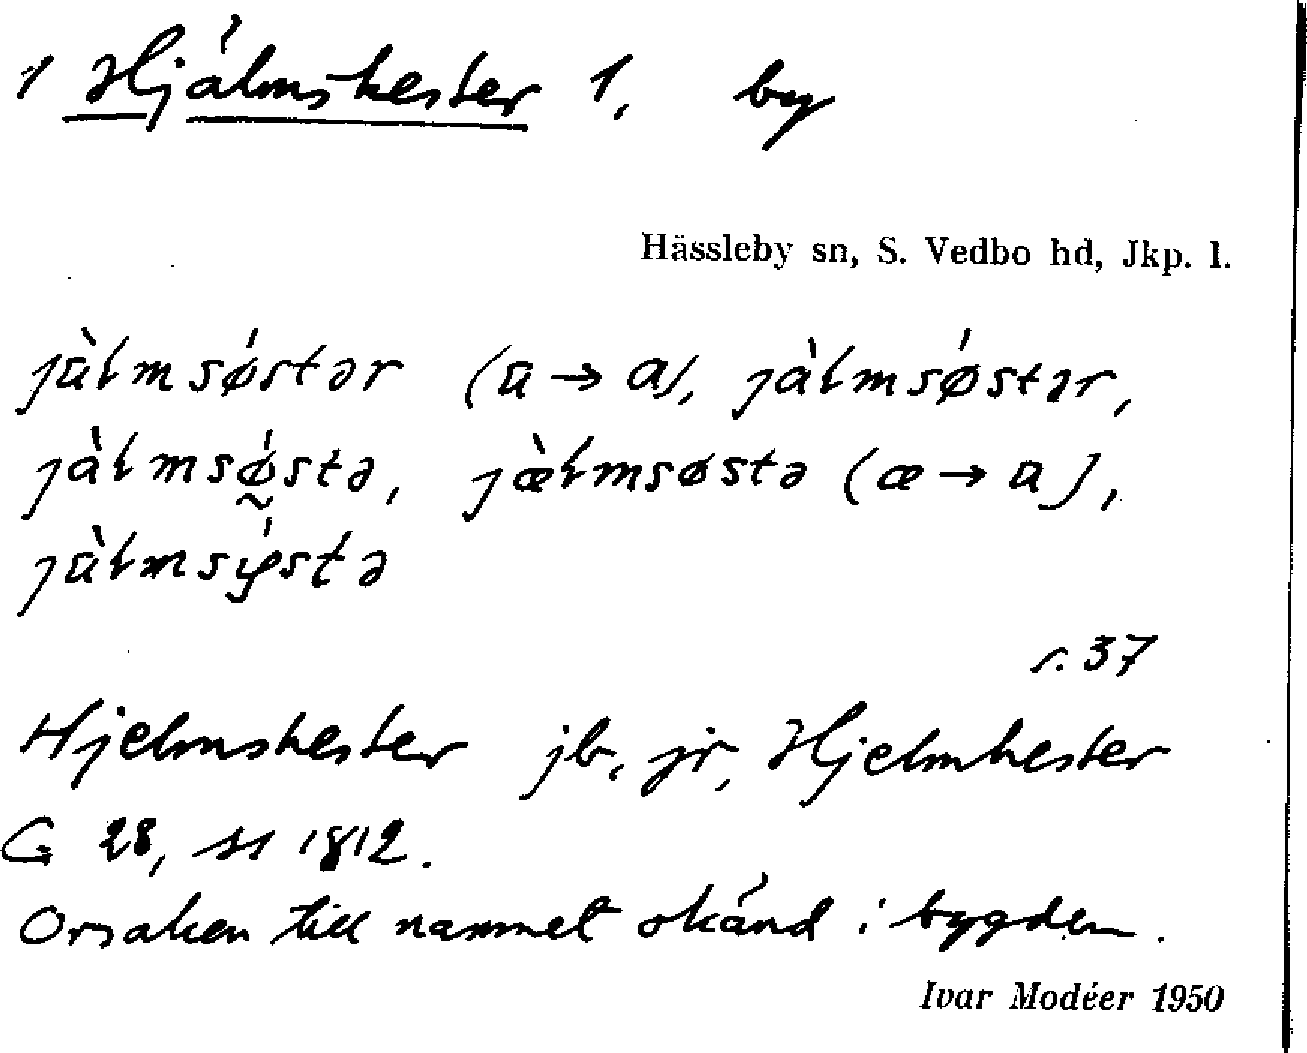 1 Hjälmshester 1, by
Hässleby sn, S. Vedbo hd, Jkp. l.
jàlmsǿstər (a → ɑ), jàlmsǿstər,
jàlmsǿ̰stə, jæ̀lmsøstə (æ → a),
jàlmsýstə
r. 37
Hjelmshester jb, jr, Hjelmhester
G 28, ss 1812.
Orsaken till namnet okänd i bygden.
Ivar Modéer 1950